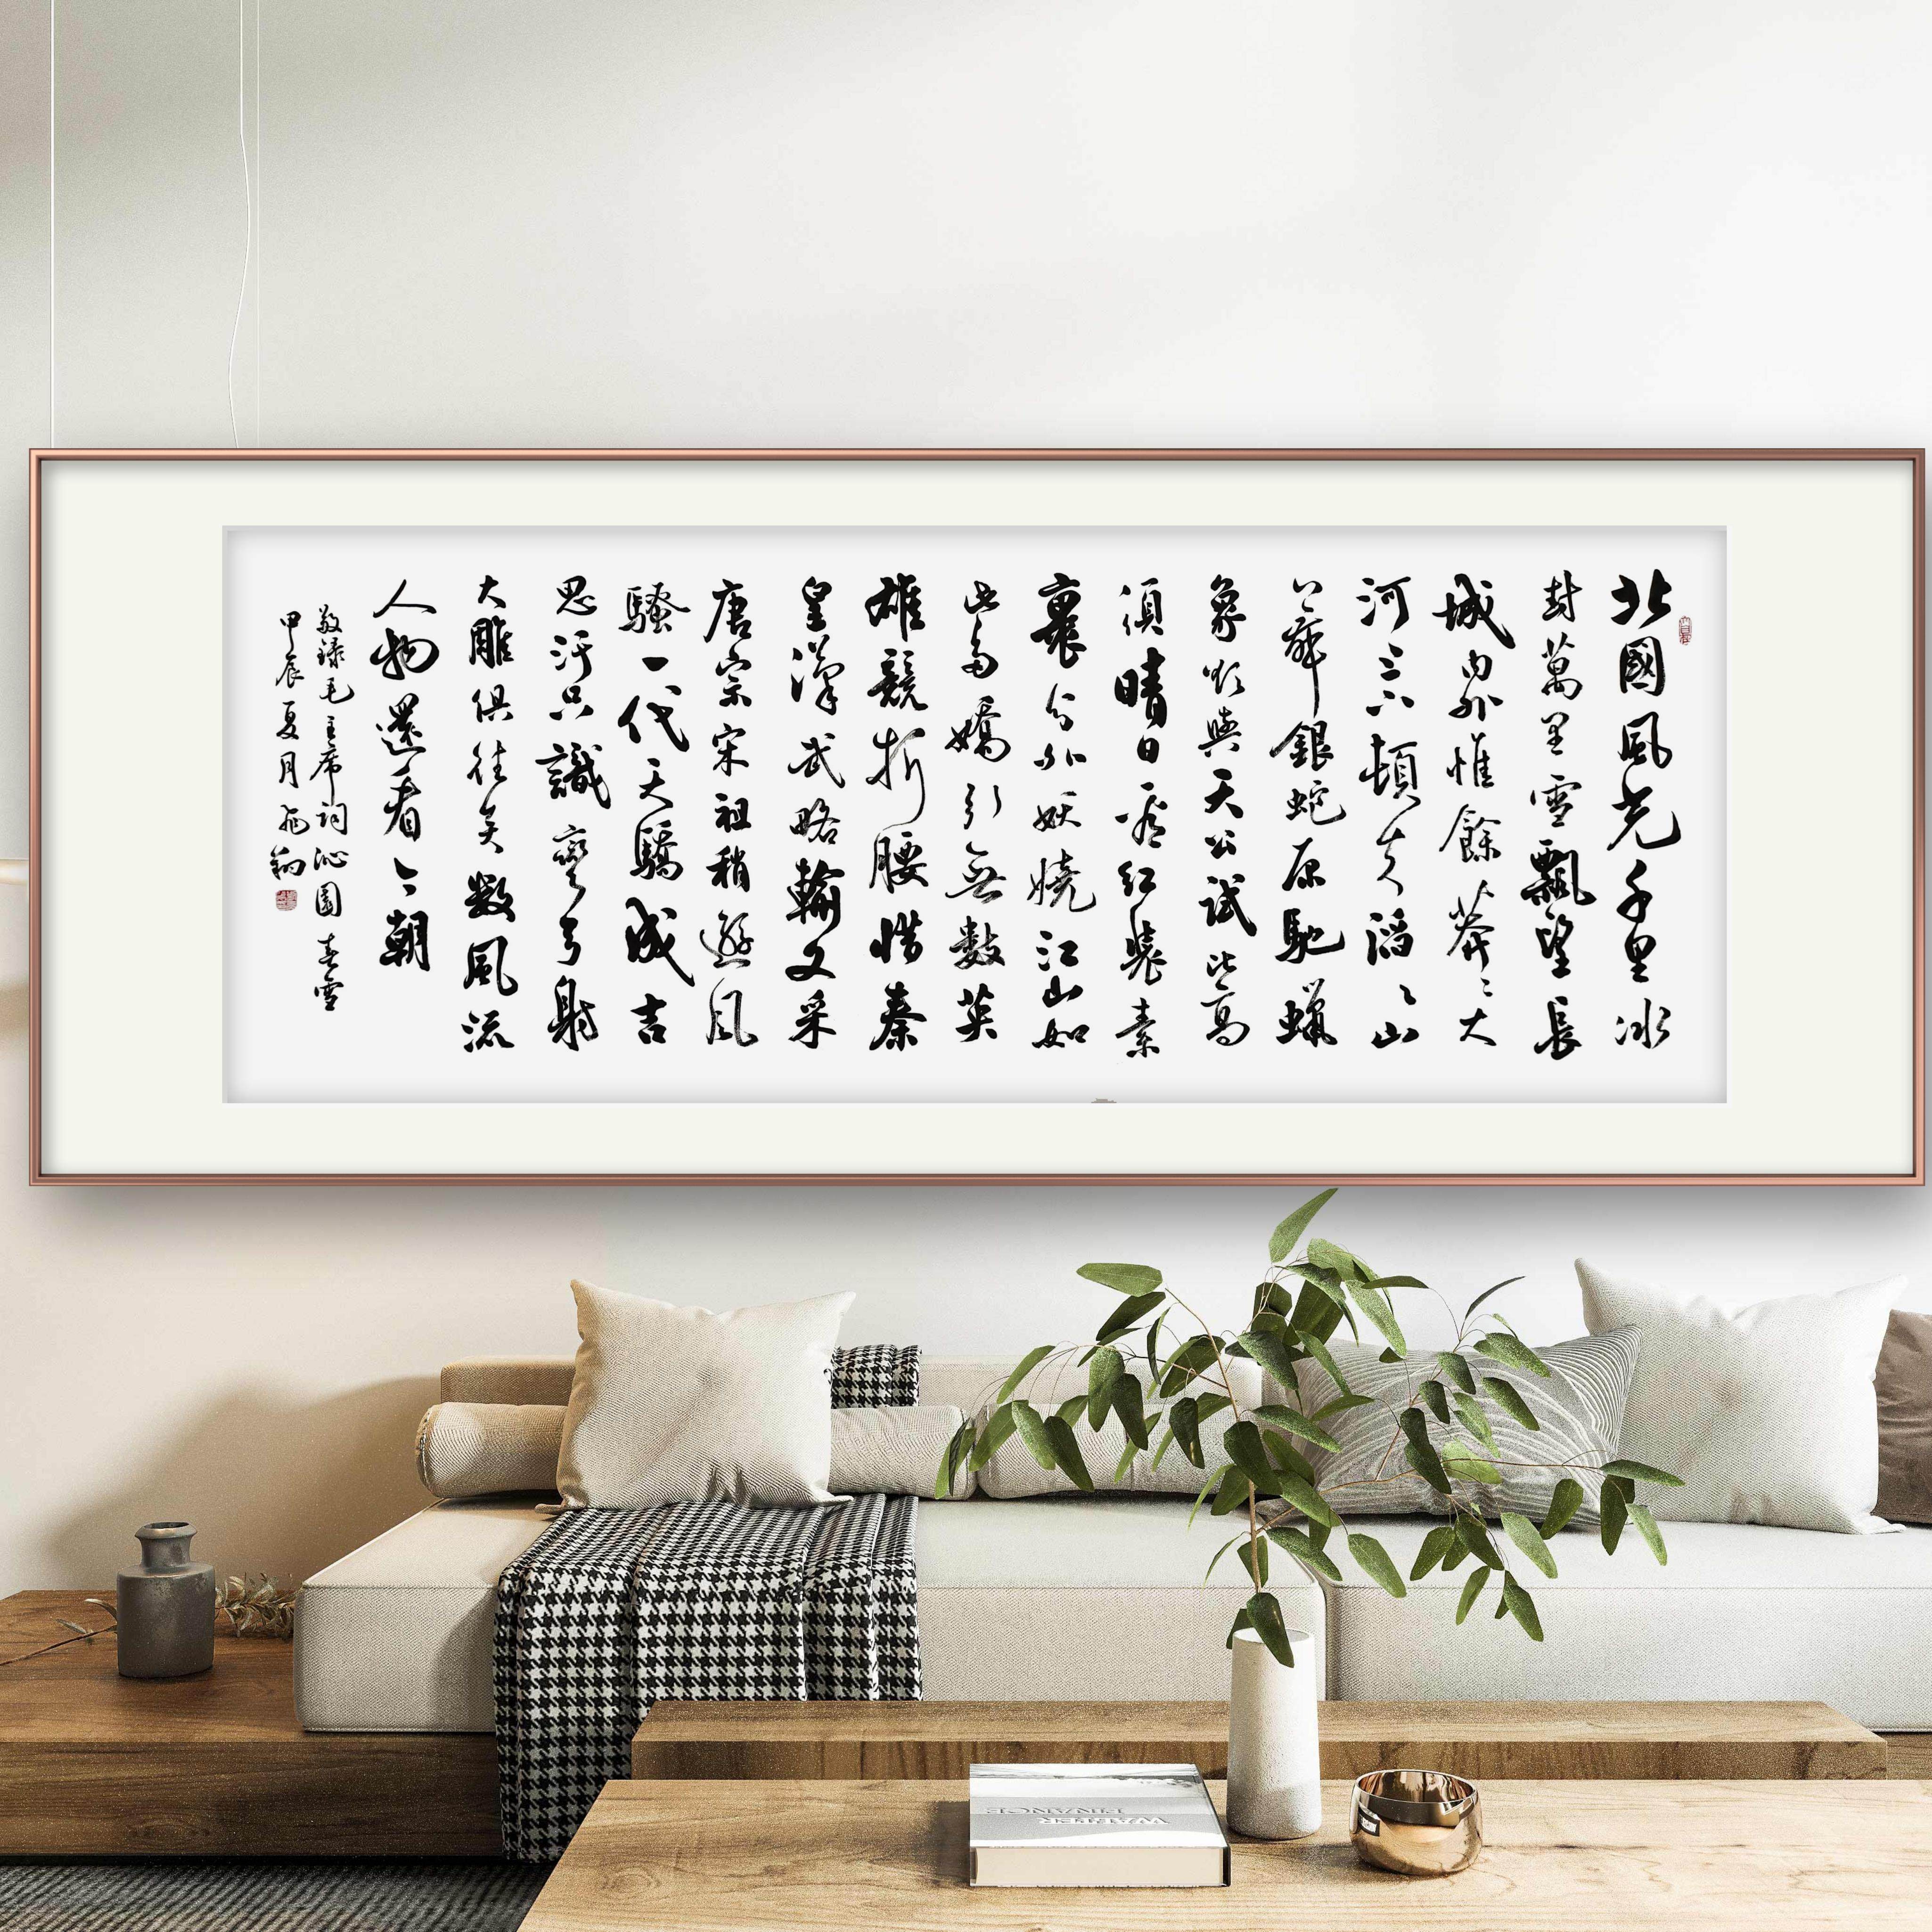 北國風光千里冰
封萬里雪飄望長
城内外惟餘莽〻大
河上下頓失滔〻山
舞銀蛇原馳蠟
象欲與天公試比高
須晴日看紅裝素
裹分外妖嬈江山如
此多嬌引無數英
雄競折腰惜秦
皇漢武略輸文采
唐宗宋祖稍遜風
騷一代天驕成吉
思汗只識彎弓射
大雕俱往矣数風流
人物還看今朝
敬録毛主席詞沁園春雪
甲辰夏月
FINANCE